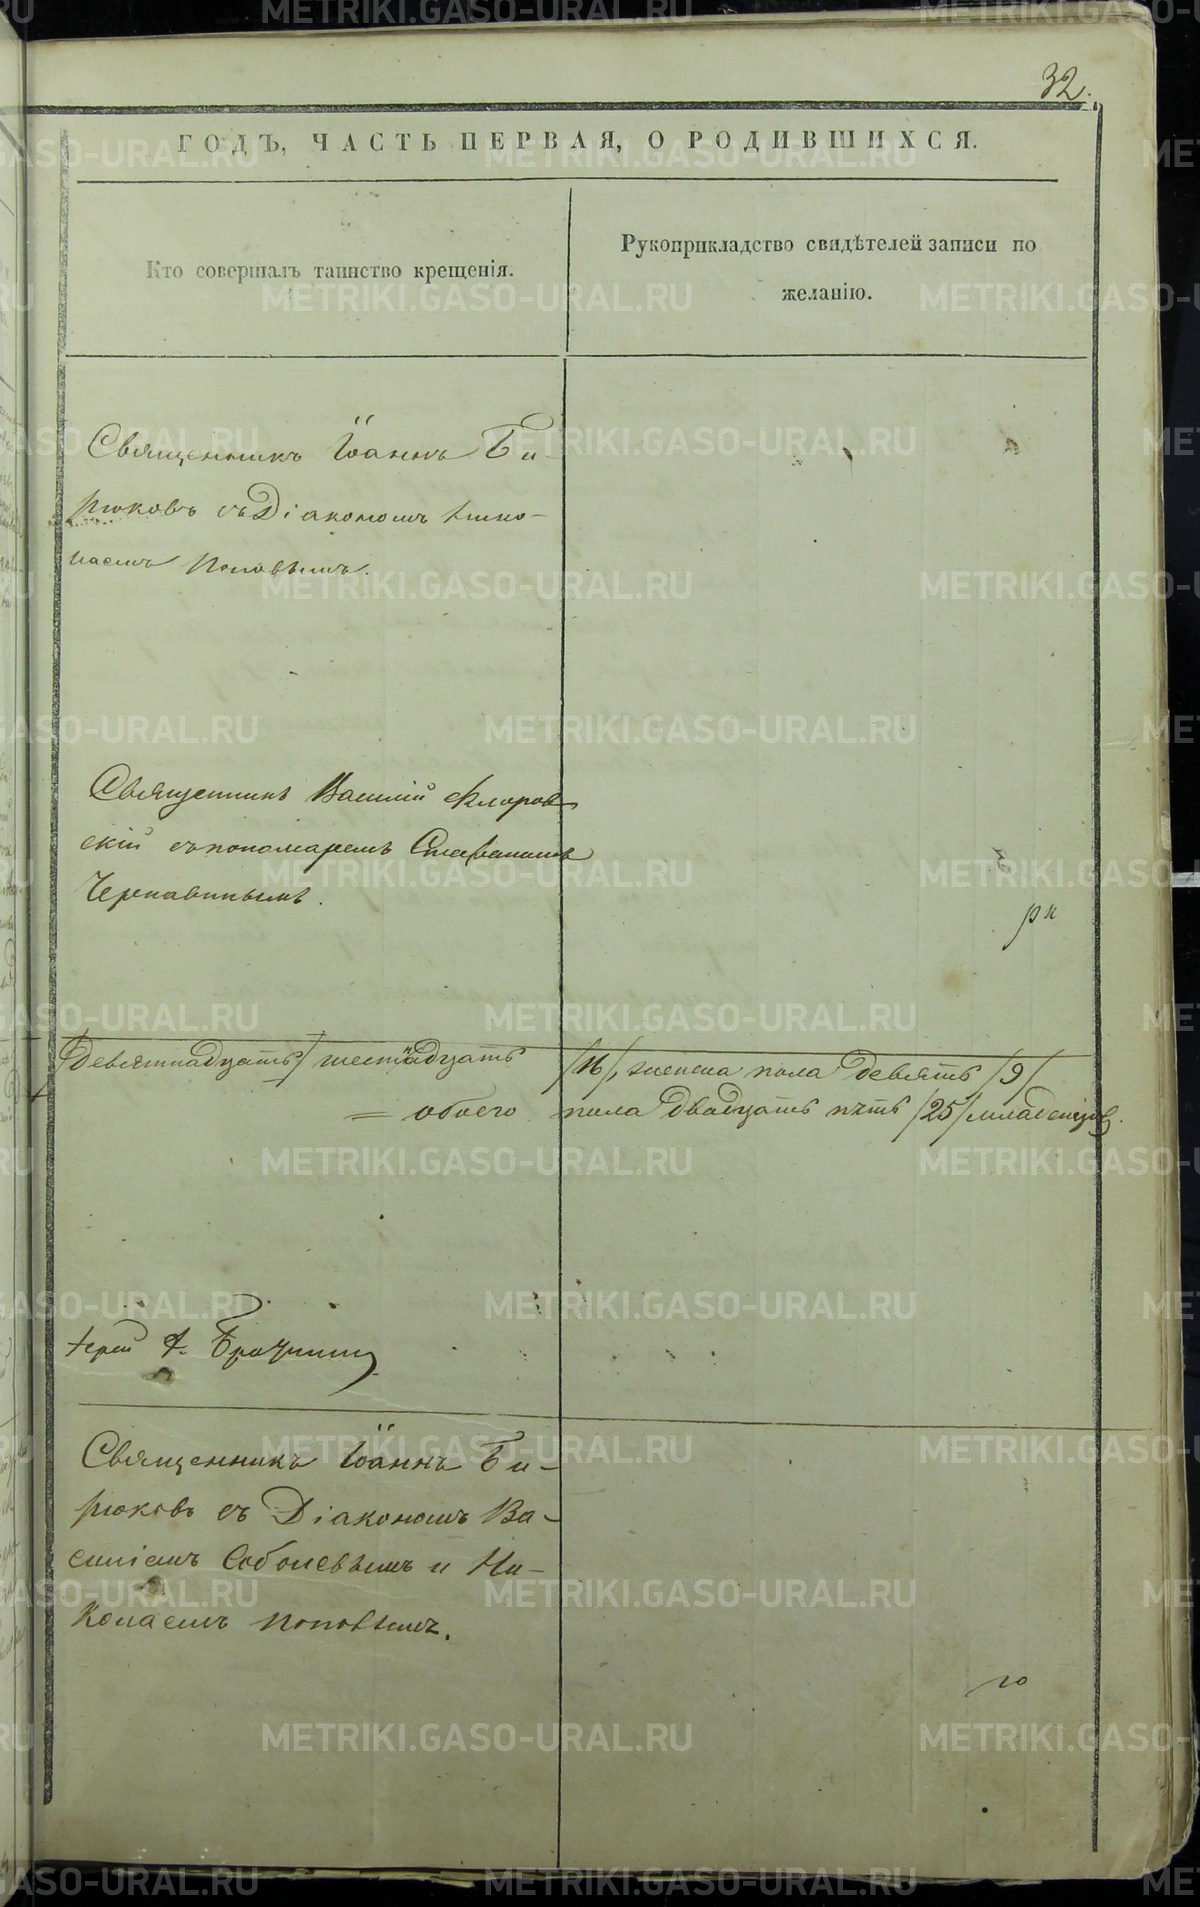 32.
ГОДЪ, ЧАСТЬ ПЕРВАЯ, О РОДИВШИХСЯ.
Кто совершалъ таинство крещенія.
Рукоприкладство свидѣтелей записи по
желанію.
Священникъ Іоаннъ Би-
рюковъ съ Діакономъ Нико-
лаемъ Поповымъ.
Священникъ Василій Флоров-
скій съ пономаремъ Стефаномъ
Черпавинымъ.
ри
/девятнадцать/ шестнадцать /16/, женска пола девять /9/
= обоего пола двадцать пять /25/ младенцевъ.
Іерей А.
Священникъ Іоаннъ Би-
рюковъ съ Діакономъ Ва-
силіемъ Соболевымъ и Ни-
колаемъ Поповымъ.
го
METRIKI.GASO-URAL.RU